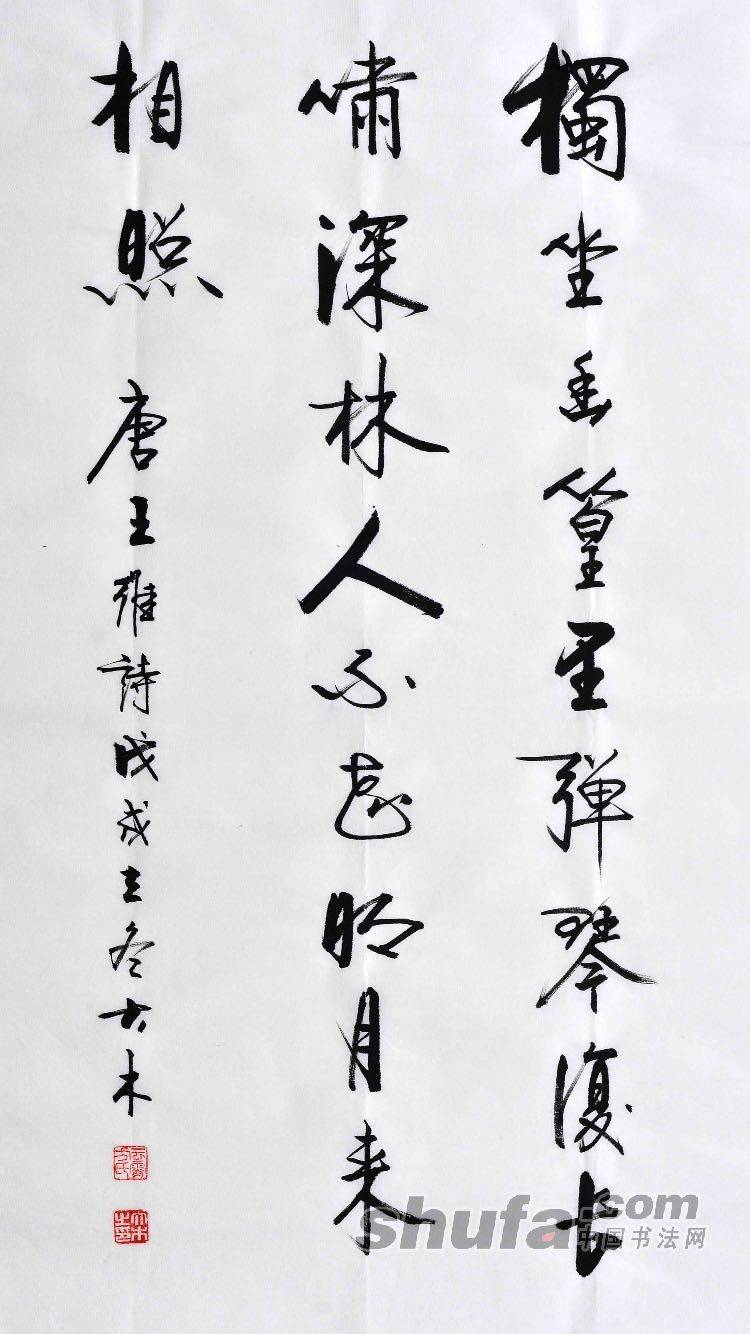 獨坐幽篁里弹琴復长
啸深林人不知明月来
相照 唐王維詩戊戌立冬大木
shufa.com
中国书法网